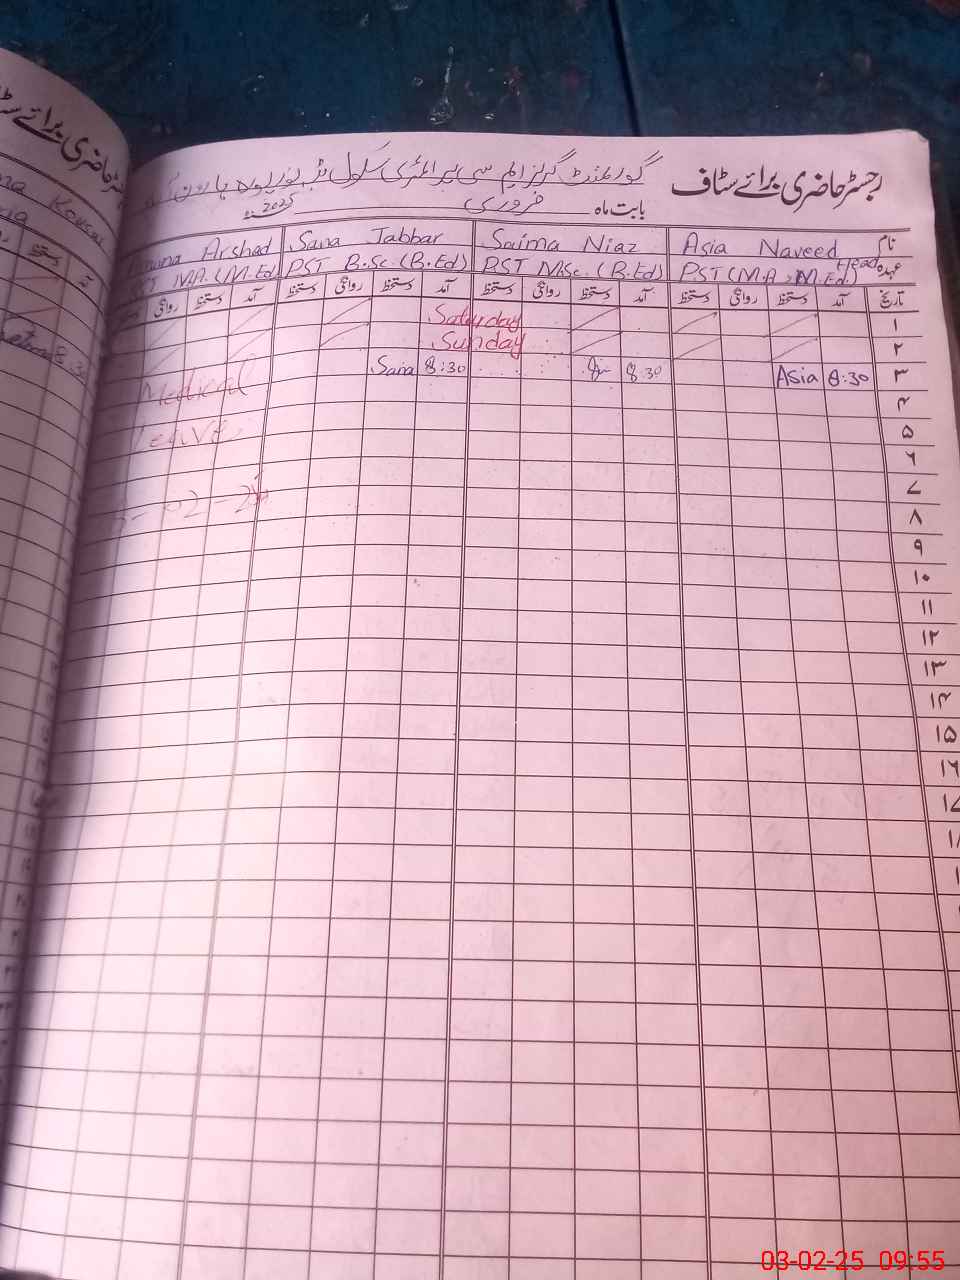 رجسٹر حاضری برائے سٹاف
گورنمنٹ گرلز ایم سی پرائمری سکول
بابت ماہ فروری 2025ء
نام Asia Naveed Saima Niaz Sana Jabbar Arshad
عہدہ Head PST (M.A, M.Ed.) PST M.Sc. (B.Ed) PST B.Sc. (B.Ed) M.A. (M.Ed)
تاریخ آمد دستخط روانگی دستخط آمد دستخط روانگی دستخط آمد دستخط روانگی دستخط آمد دستخط روانگی دستخط
۱ Saturday
۲ Sunday
۳ 8:30 Asia 8:30 8:30 Sana Medical
۴
۵ Leave
۶
۷
۸
۹
۱۰
۱۱
۱۲
۱۳
۱۴
۱۵
۱۶
Kousar
8:30
03-02-25 09:55